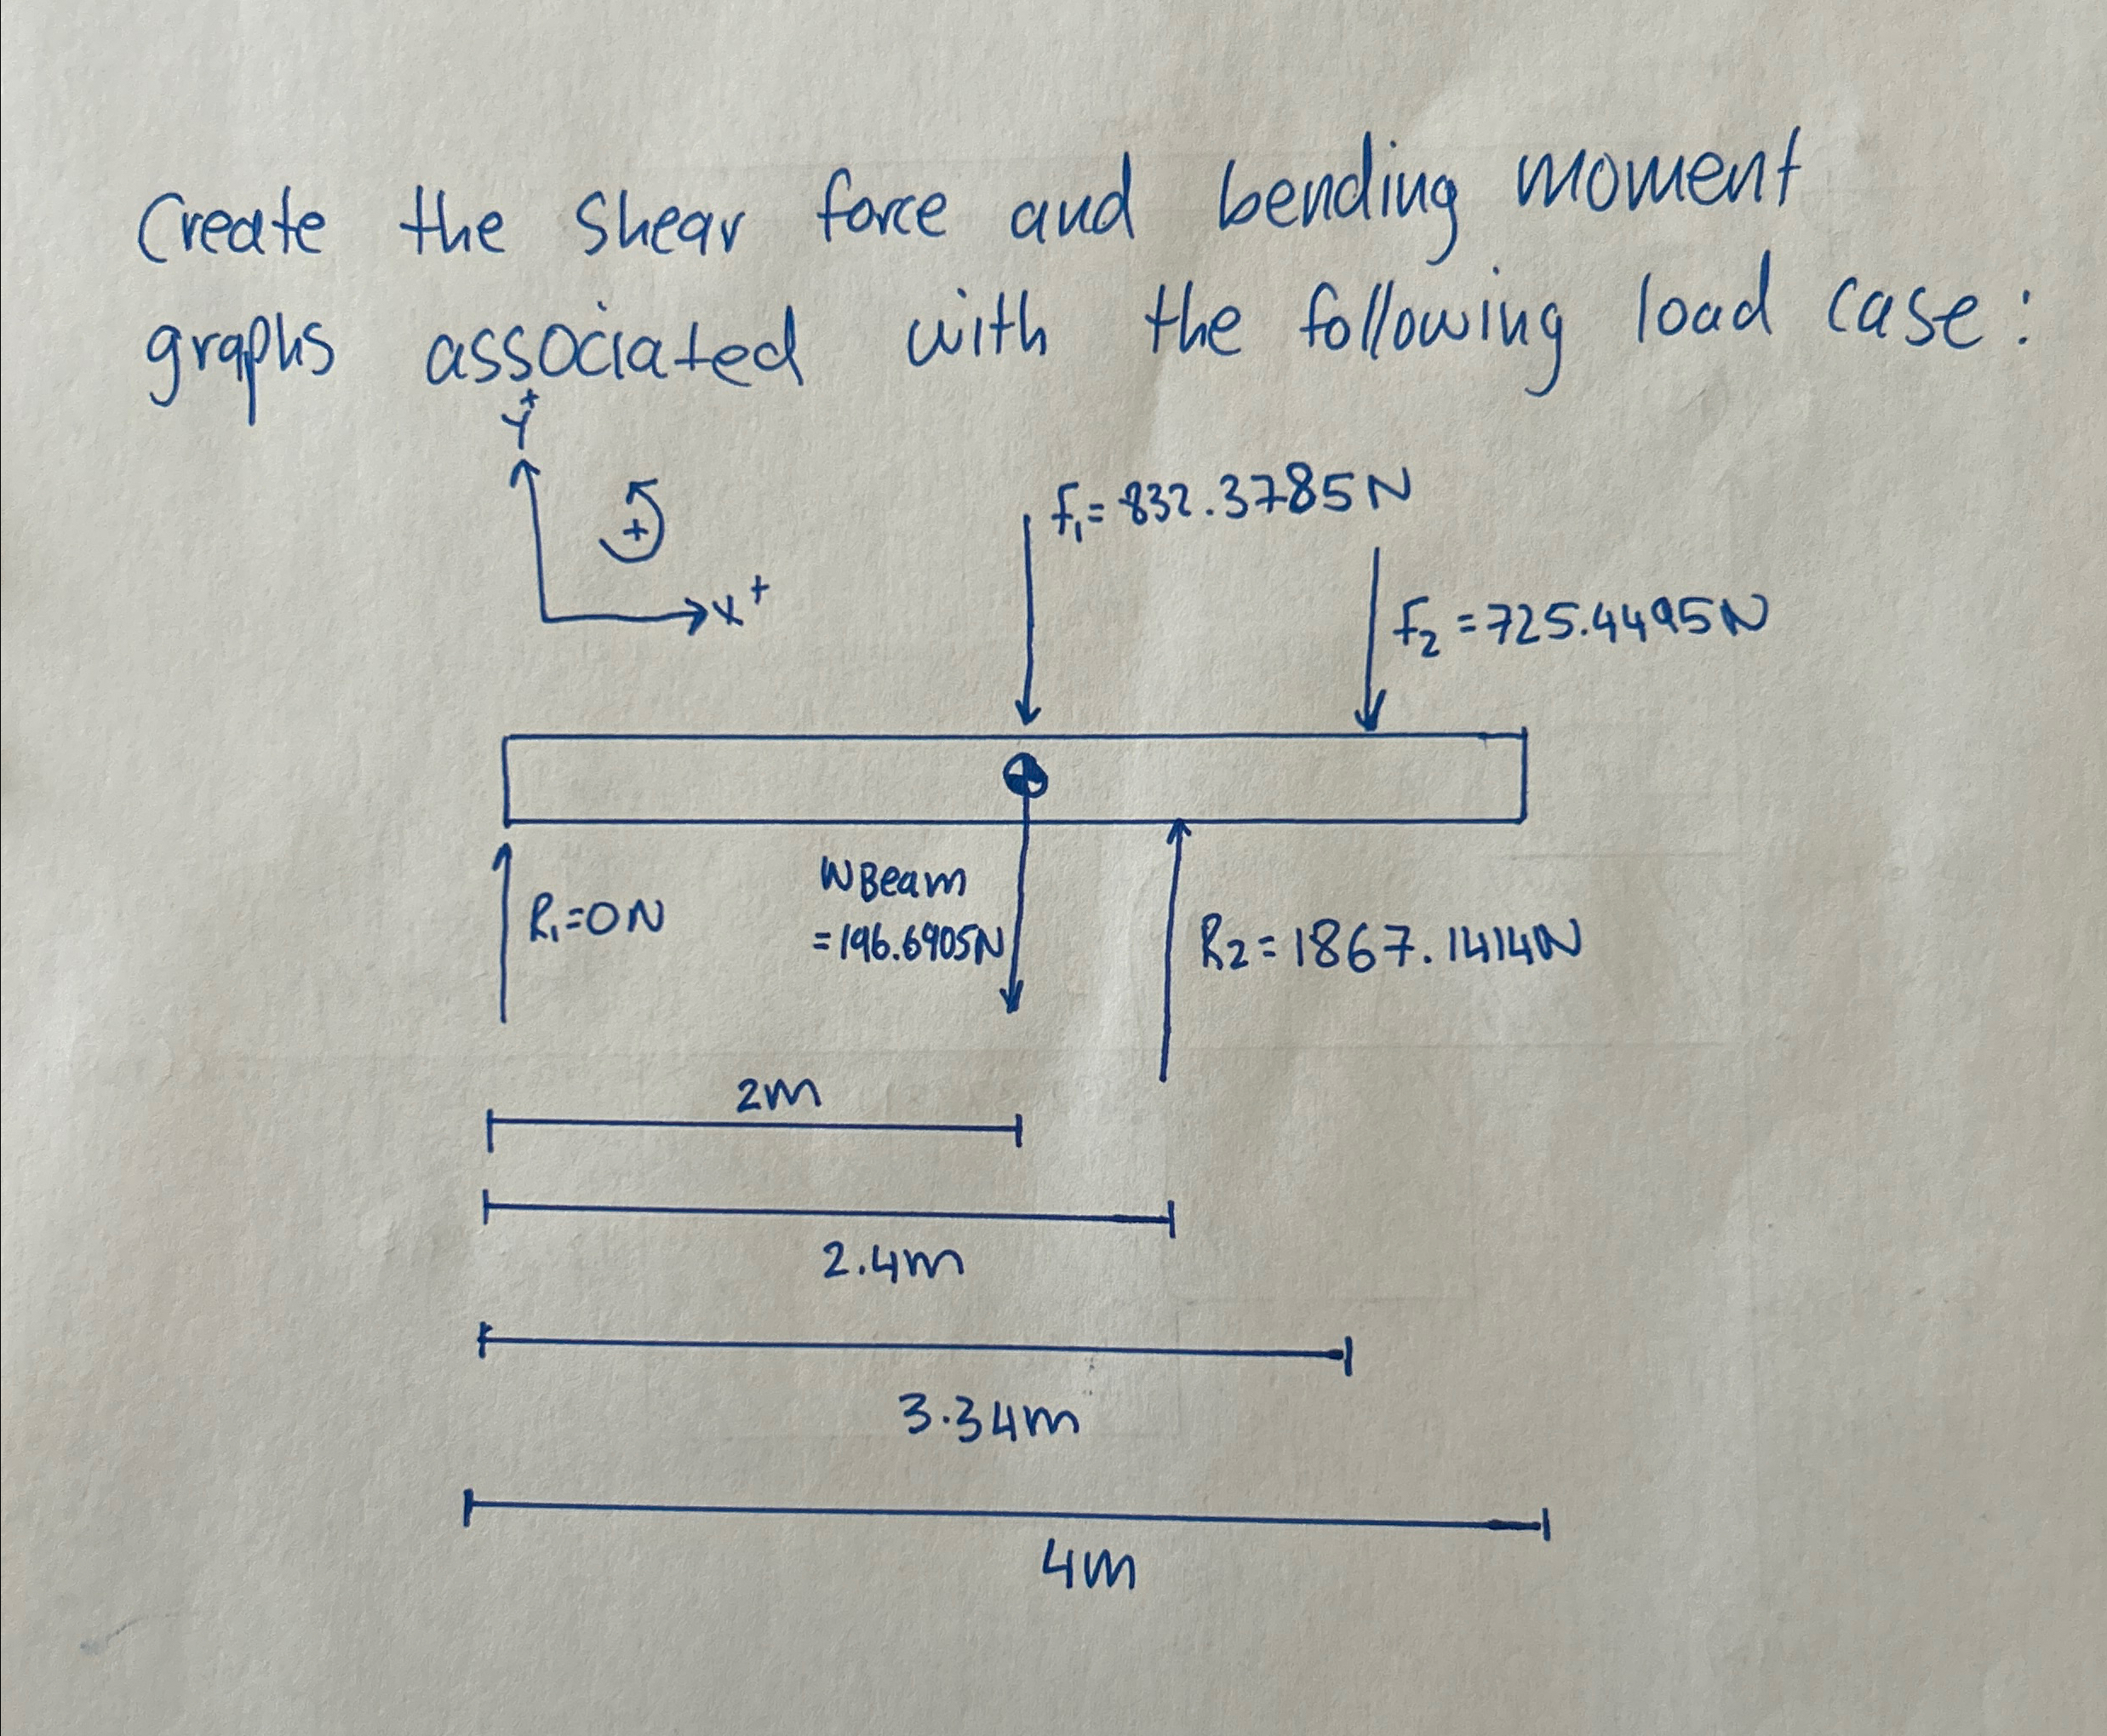 Create the shear force and bending moment
graphs associated with the following load case:
Y+
+
X+
F₁=832.3785N
F₂=725.4495N
R₁=0N
WBeam
=196.6905N
R2=1867.1414N
2m
2.4m
3.34m
4m